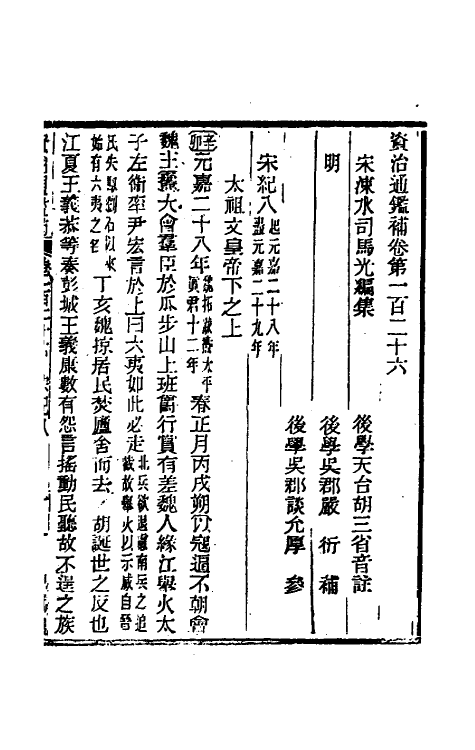 資治通鑑補卷第一百二十六
宋涑水司馬光編集
後學天台胡三省音註
明
後學吳郡嚴衍補
後學吳郡談允厚參
宋紀八起元嘉二十八年盡元嘉二十九年
太祖文皇帝下之上
辛卯元嘉二十八年魏拓跋燾太平真君十二年春正月丙戌朔以寇逼不朝會
魏主大會羣臣於瓜步山上班爵行賞有差魏人緣江舉火太
子左衛率尹宏言於上曰六夷如此必走北兵欲退慮南兵之追截故舉火以示威自晉
氏失馭劉石以來始有六夷之名丁亥魏掠居民焚廬舍而去胡誕世之反也
江夏王義恭等奏彭城王義康數有怨言搖動民聽故不逞之族